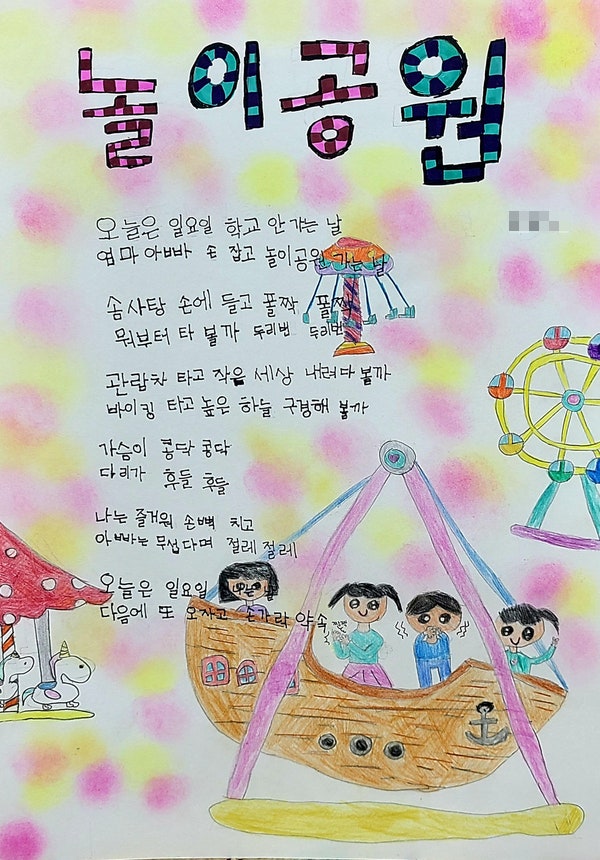 놀이공원
오늘은 일요일 학교 안 가는 날
엄마 아빠 손 잡고 놀이공원 가는 날
솜사탕 손에 들고 폴짝 폴짝
뭐부터 타 볼까 두리번 두리번
관람차 타고 작은 세상 내려다 볼까
바이킹 타고 높은 하늘 구경해 볼까
가슴이 콩닥 콩닥
다리가 후들 후들
나는 즐거워 손뼉 치고
아빠는 무섭다며 절레 절레
오늘은 일요일
다음에 또 오자고 손가락 약속
짝짝